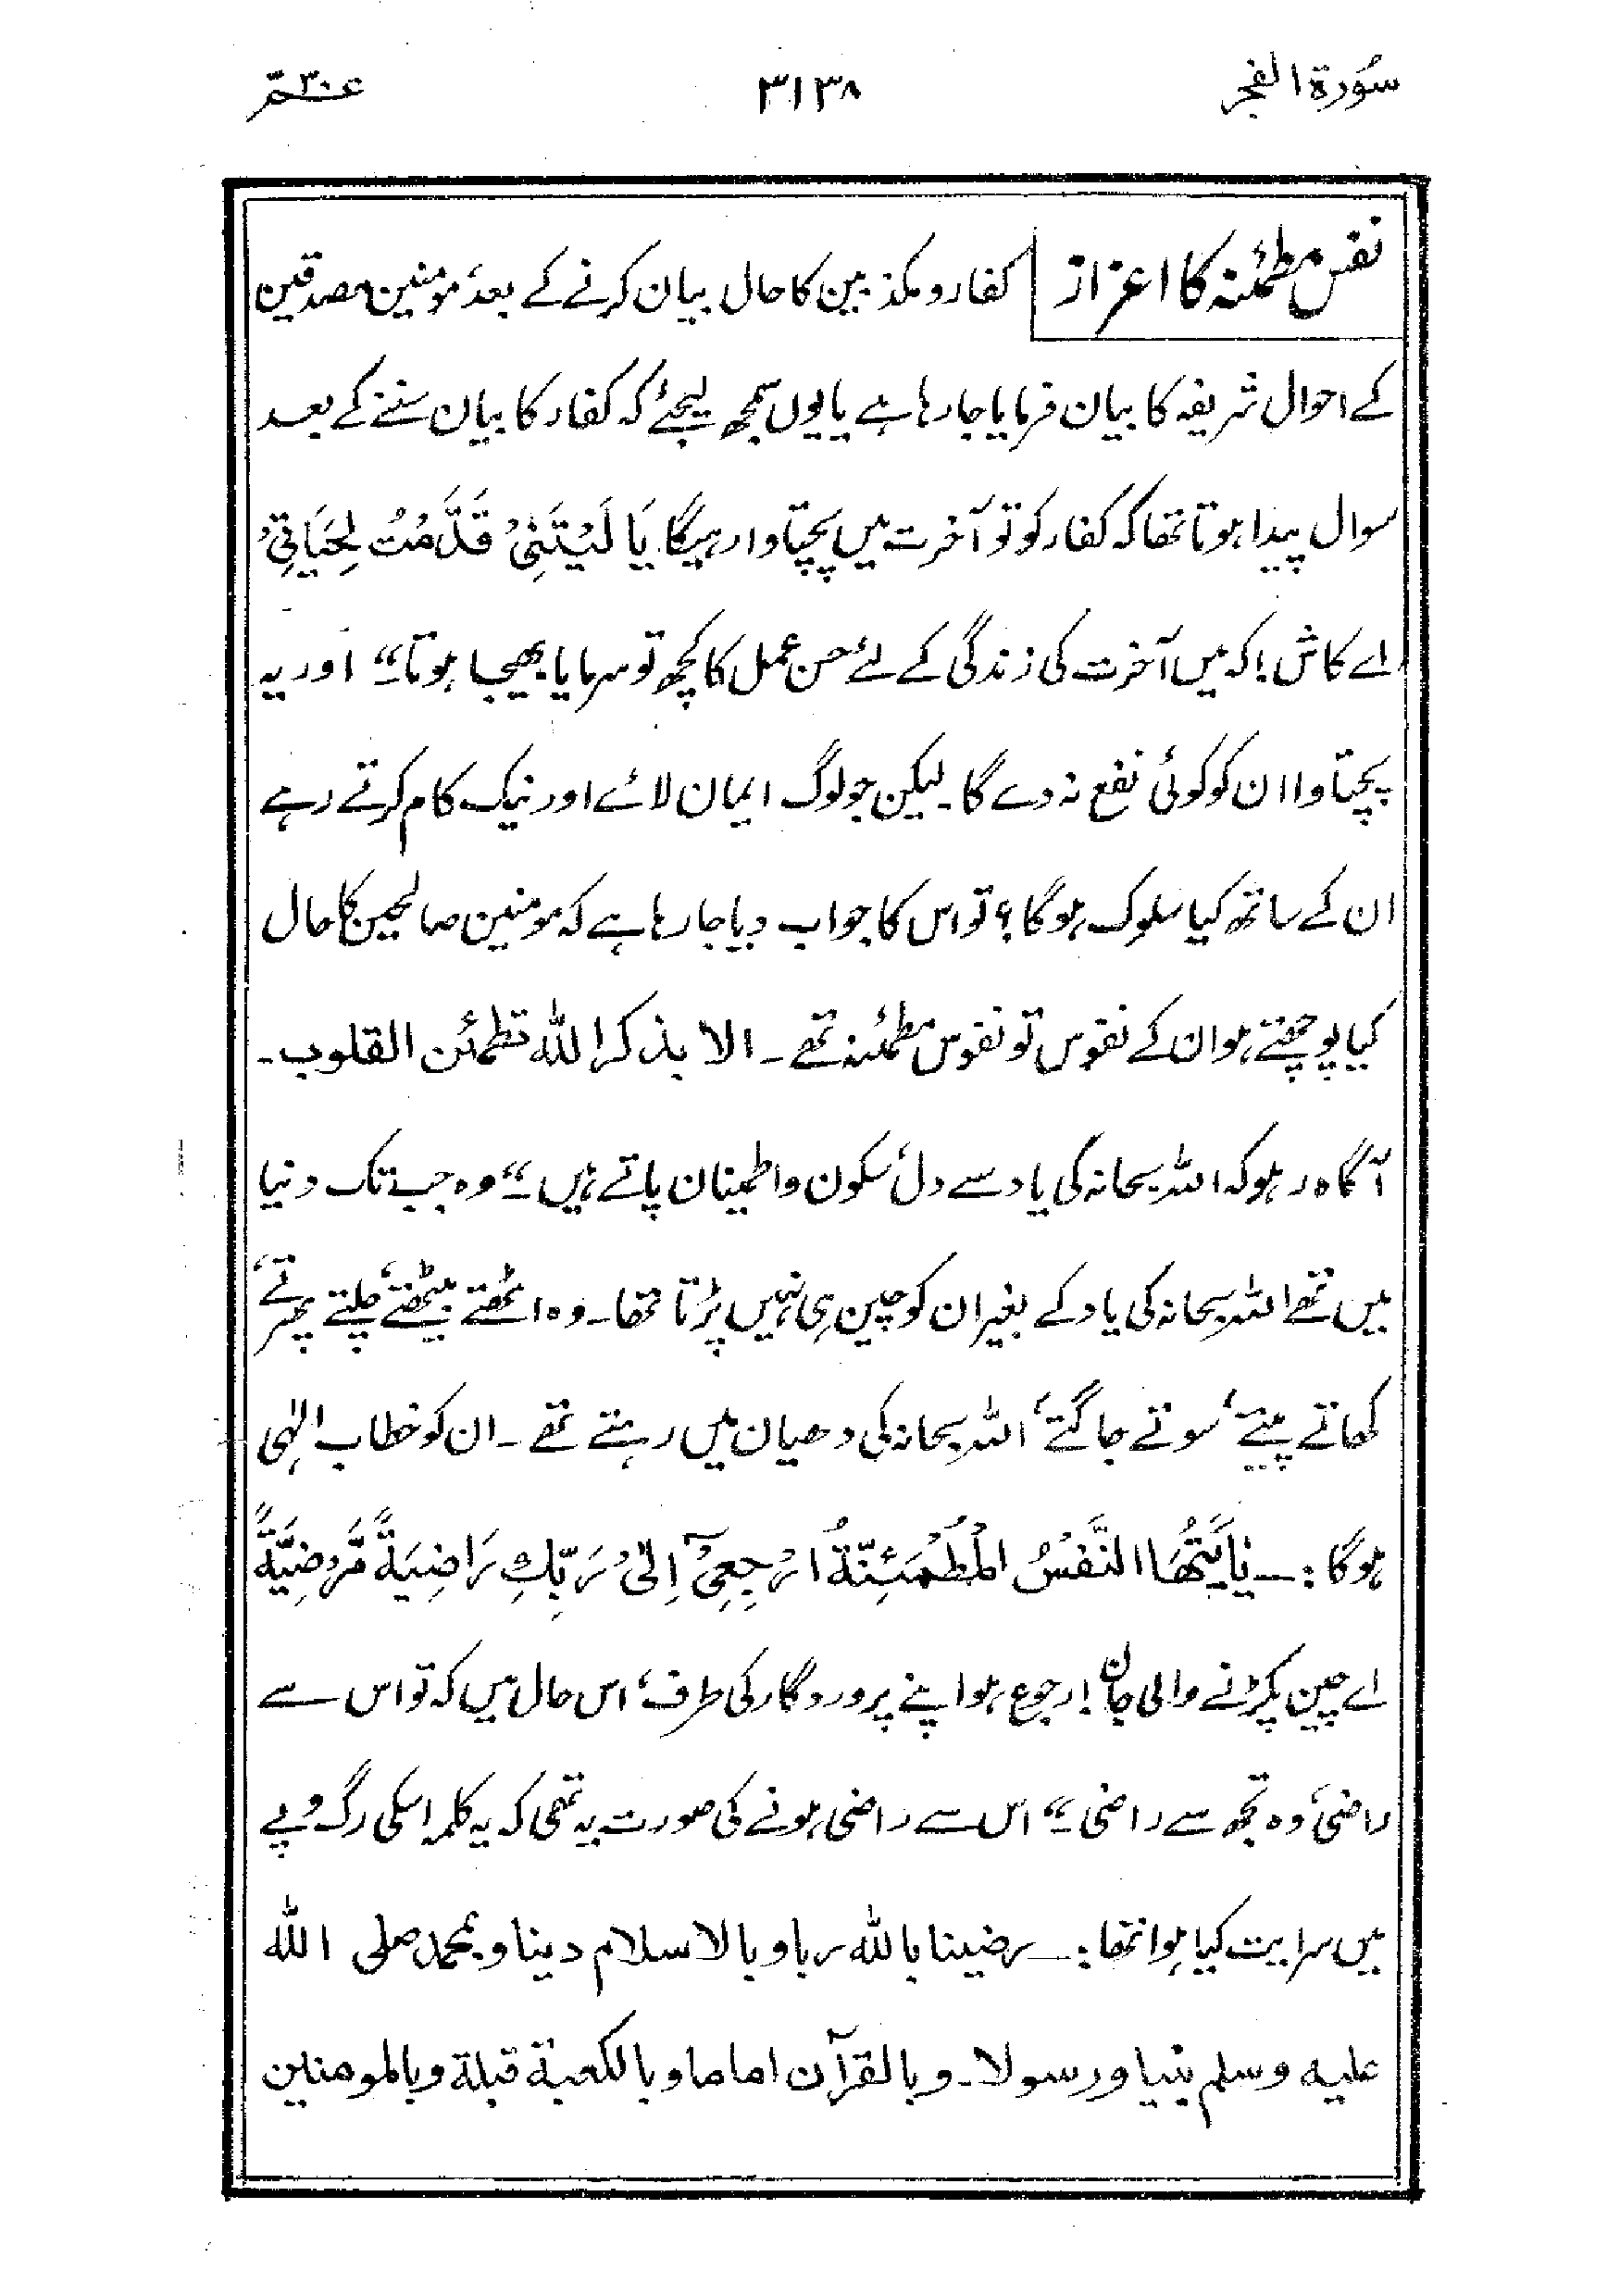 سُورۃ الفجر
۳۱۳۸
عمّ ۳۰
نفس مطمئنہ کا اعزاز
کفار و مکذبین کا حال بیان کرنے کے بعد، مومنین مصدقین
کے احوال شریفہ کا بیان فرمایا جا رہا ہے یا یوں سمجھ لیجئے کہ کفار کا بیان سننے کے بعد
سوال پیدا ہوتا تھا کہ کفار کو تو آخرت میں پچھتاوا رہیگا یَا لَیْتَنِیْ قَدَّمْتُ لِحَیَاتِیْ
اے کاش! کہ میں آخرت کی زندگی کے لئے حسن عمل کا کچھ تو سرمایا بھیجا ہوتا“۔ اور یہ
پچھتاوا ان کو کوئی نفع نہ دے گا۔ لیکن جو لوگ ایمان لائے اور نیک کام کرتے رہے
ان کے ساتھ کیا سلوک ہوگا؟ تو اس کا جواب دیا جا رہا ہے کہ مومنین صالحین کا حال
کیا پوچھتے ہو ان کے نفوس تو نفوس مطمئنہ تھے۔ الا بذکر اللہ تطمئن القلوب۔
آگاہ رہو کہ اللہ سبحانہ کی یاد سے دل، سکون و اطمینان پاتے ہیں“۔ وہ جب تک دنیا
میں تھے اللہ سبحانہ کی یاد کے بغیر ان کو چین ہی نہیں پڑتا تھا۔ وہ اٹھتے بیٹھتے، چلتے پھرتے،
کھاتے پیتے، سوتے جاگتے، اللہ سبحانہ کی دھیان میں رہتے تھے۔ ان کو خطاب الٰہی
ہوگا :۔ یٰاَیَّتُهَا النَّفْسُ الْمُطْمَئِنَّةُ ارْجِعِیْٓ اِلٰی رَبِّكِ رَاضِیَةً مَّرْضِیَّةً
اے چین پکڑنے والی جان! رجوع ہو اپنے پروردگار کی طرف، اس حال میں کہ تو اس سے
راضی، وہ تجھ سے راضی“۔ اس سے راضی ہونے کی صورت یہ تھی کہ یہ کلمہ اسکی رگ و پے
میں سرایت کیا ہوا تھا :۔ رضینا باللہ ربا و بالاسلام دینا و بمحمد صلی اللہ
علیه وسلم نبیا و رسولا۔ و بالقرآن اماما و بالکعبة قبلة و بالمومنین